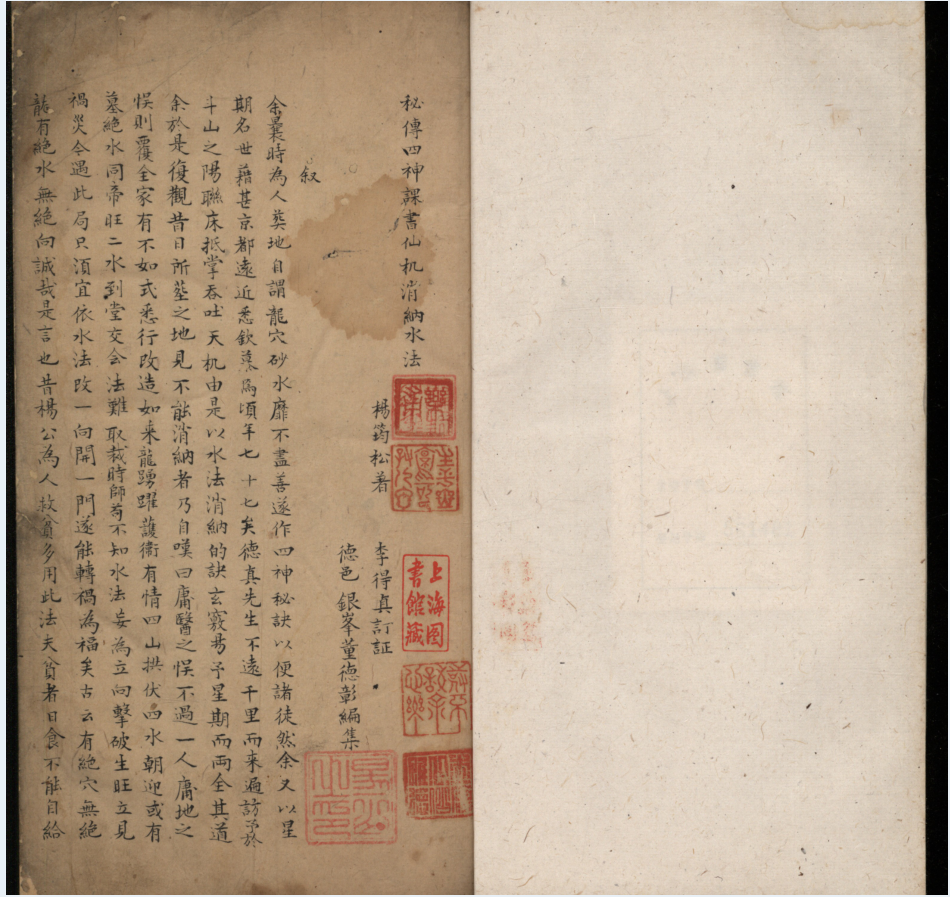 秘傳四神課書仙机消納水法
楊筠松著
李得真訂証
德邑銀峯董德彰編集
叙
余曩時為人葬地自謂龍穴砂水靡不盡善遂作四神秘訣以便諸徒然余又以星
期名世藉甚京都遠近悉欽慕焉頃年七十七矣德真先生不遠千里而来遍訪予於
斗山之陽聯床抵掌吞吐天机由是以水法消納的訣玄竅易予星期而兩全其道
余於是復觀昔日所塟之地見不能消納者乃自嘆曰庸醫之悮不過一人庸地之
悮則覆全家有不如式悉行改造如来龍踴躍護衛有情四山拱伏四水朝迎或有
墓絶水同帝旺二水到堂交会法難取裁時師苟不知水法妄為立向擊破生旺立見
禍災今遇此局只須宜依水法改一向開一門遂能轉禍為福矣古云有絶穴無絶
龍有絶水無絶向誠哉是言也昔楊公為人救貧多用此法夫貧者日食不能自給
上海图
書館藏